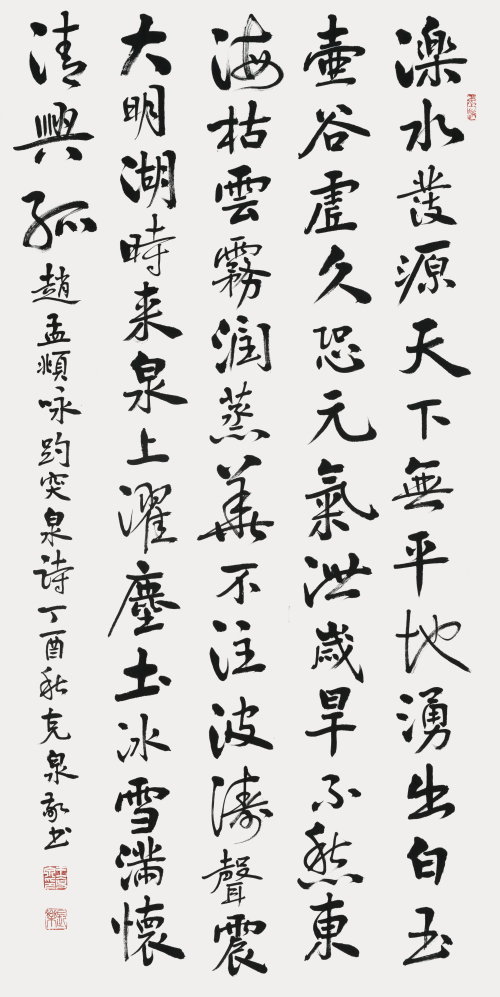 濼水發源天下無平地湧出白玉
壺谷虛久恐元氣泄歲旱不愁東
海枯雲霧润蒸華不注波濤聲震
大明湖時来泉上濯塵土冰雪滿懷
清興孤 趙孟頫咏趵突泉詩丁酉秋克泉敬书